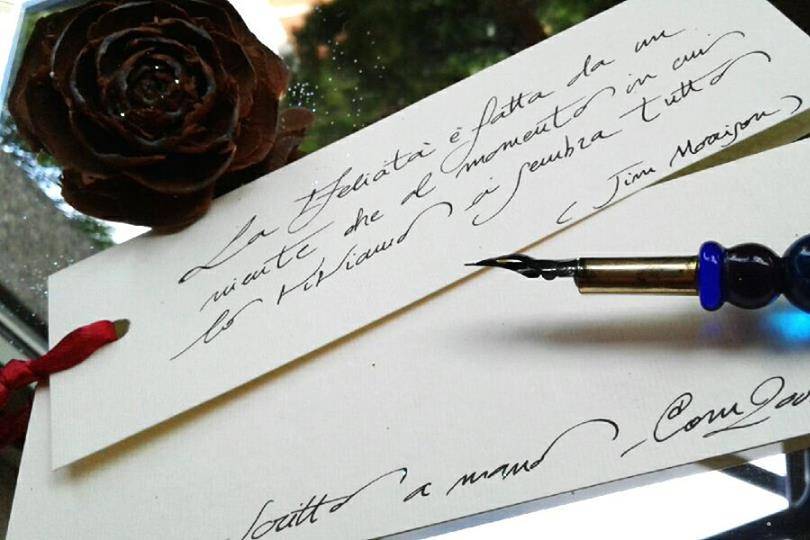 La Felicità è fatta da un
niente che al momento in cui
lo viviamo ci sembra tutto
( Jim Morrison )
Scritto a mano